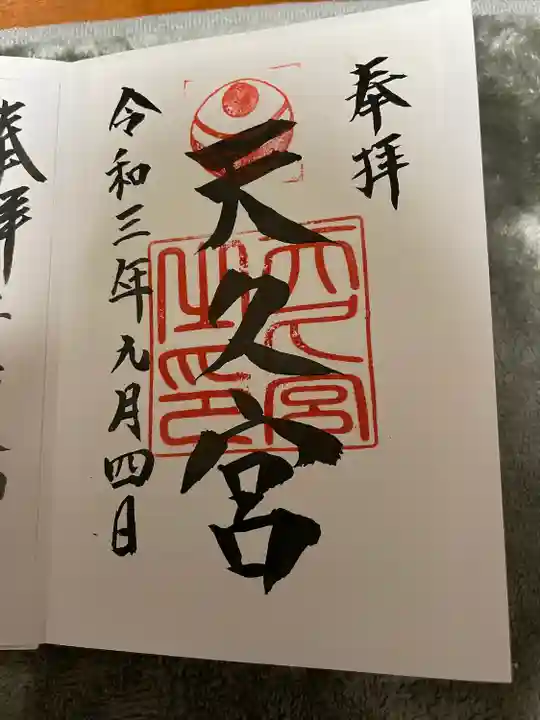 奉拝
天久宮
令和三年九月四日
奉拝